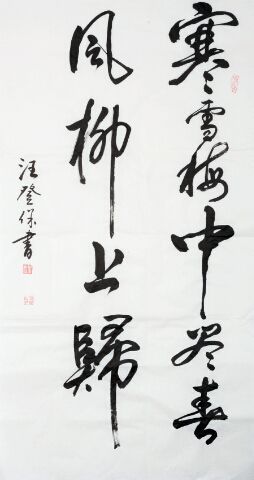 寒雪梅中尽春
風柳上歸
汪登保書